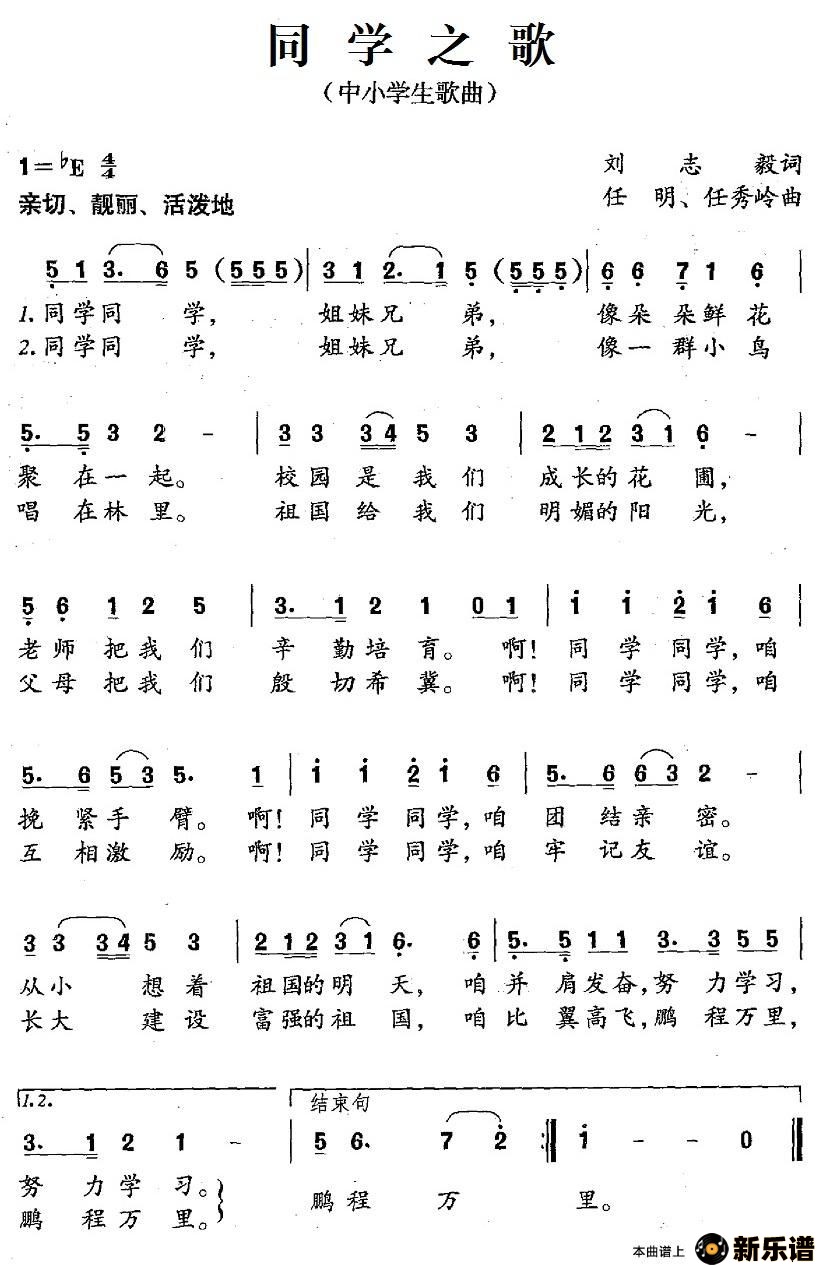 同学之歌
（中小学生歌曲）
1=♭E 4/4
刘志毅词
亲切、靓丽、活泼地
任明、任秀岭曲
5 1 3. 6 5 (5 5 5) | 3 1 2. 1 5 (5 5 5) | 6 6 7 1 6 |
1.同学同学，姐妹兄弟，像朵朵鲜花
2.同学同学，姐妹兄弟，像一群小鸟
5. 5 3 2 - | 3 3 3 4 5 3 | 2 1 2 3 1 6 - |
聚在一起。校园是我们成长的花圃，
唱在林里。祖国给我们明媚的阳光，
5 6 1 2 5 | 3. 1 2 1 0 1 | i i 2 i 6 |
老师把我们辛勤培育。啊！同学同学，咱
父母把我们殷切希冀。啊！同学同学，咱
5. 6 5 3 5. 1 | i i 2 i 6 | 5. 6 6 3 2 - |
挽紧手臂。啊！同学同学，咱团结亲密。
互相激励。啊！同学同学，咱牢记友谊。
3 3 3 4 5 3 | 2 1 2 3 1 6. 6 | 5. 5 1 1 3. 3 5 5
从小想着祖国的明天，咱并肩发奋，努力学习，
长大建设富强的祖国，咱比翼高飞，鹏程万里，
1.2.
结束句
3. 1 2 1 - | 5 6. 7 2 :‖ i - - 0 ‖
努力学习。
鹏程万里。
鹏程万里。
本曲谱上 新乐谱